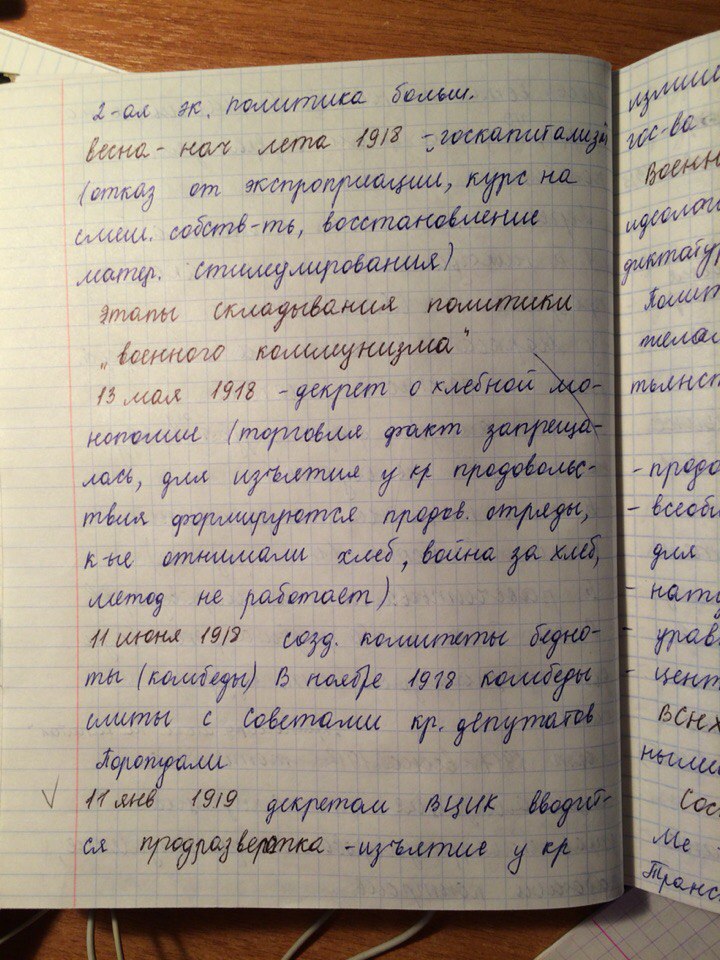 2-ая эк. политика больш.
весна - нач лета 1918 - госкапитализм
(отказ от экспроприации, курс на
смеш. собств-ть, восстановление
матер. стимулирования)
Этапы складывания политики
„военного коммунизма"
13 мая 1918 - декрет о хлебной мо-
нополии (торговля факт запреща-
лась, для изъятия у кр продовольс-
твия формируются продов. отряды,
к-ые отнимали хлеб, война за хлеб,
метод не работает)
11 июня 1918 созд. комитеты бедно-
ты (комбеды) В ноябре 1918 комбеды
слиты с советами кр. депутатов
11 янв 1919 декретом ВЦИК вводит-
ся продразверстка - изъятие у кр
гос-во
Военн
идеолог
диктатур
Полит
желан
тьянст
- продо
- всеобщ
для
- нату
- урав
- цент
ВСНХ
ными
Сос
Ме
Транс